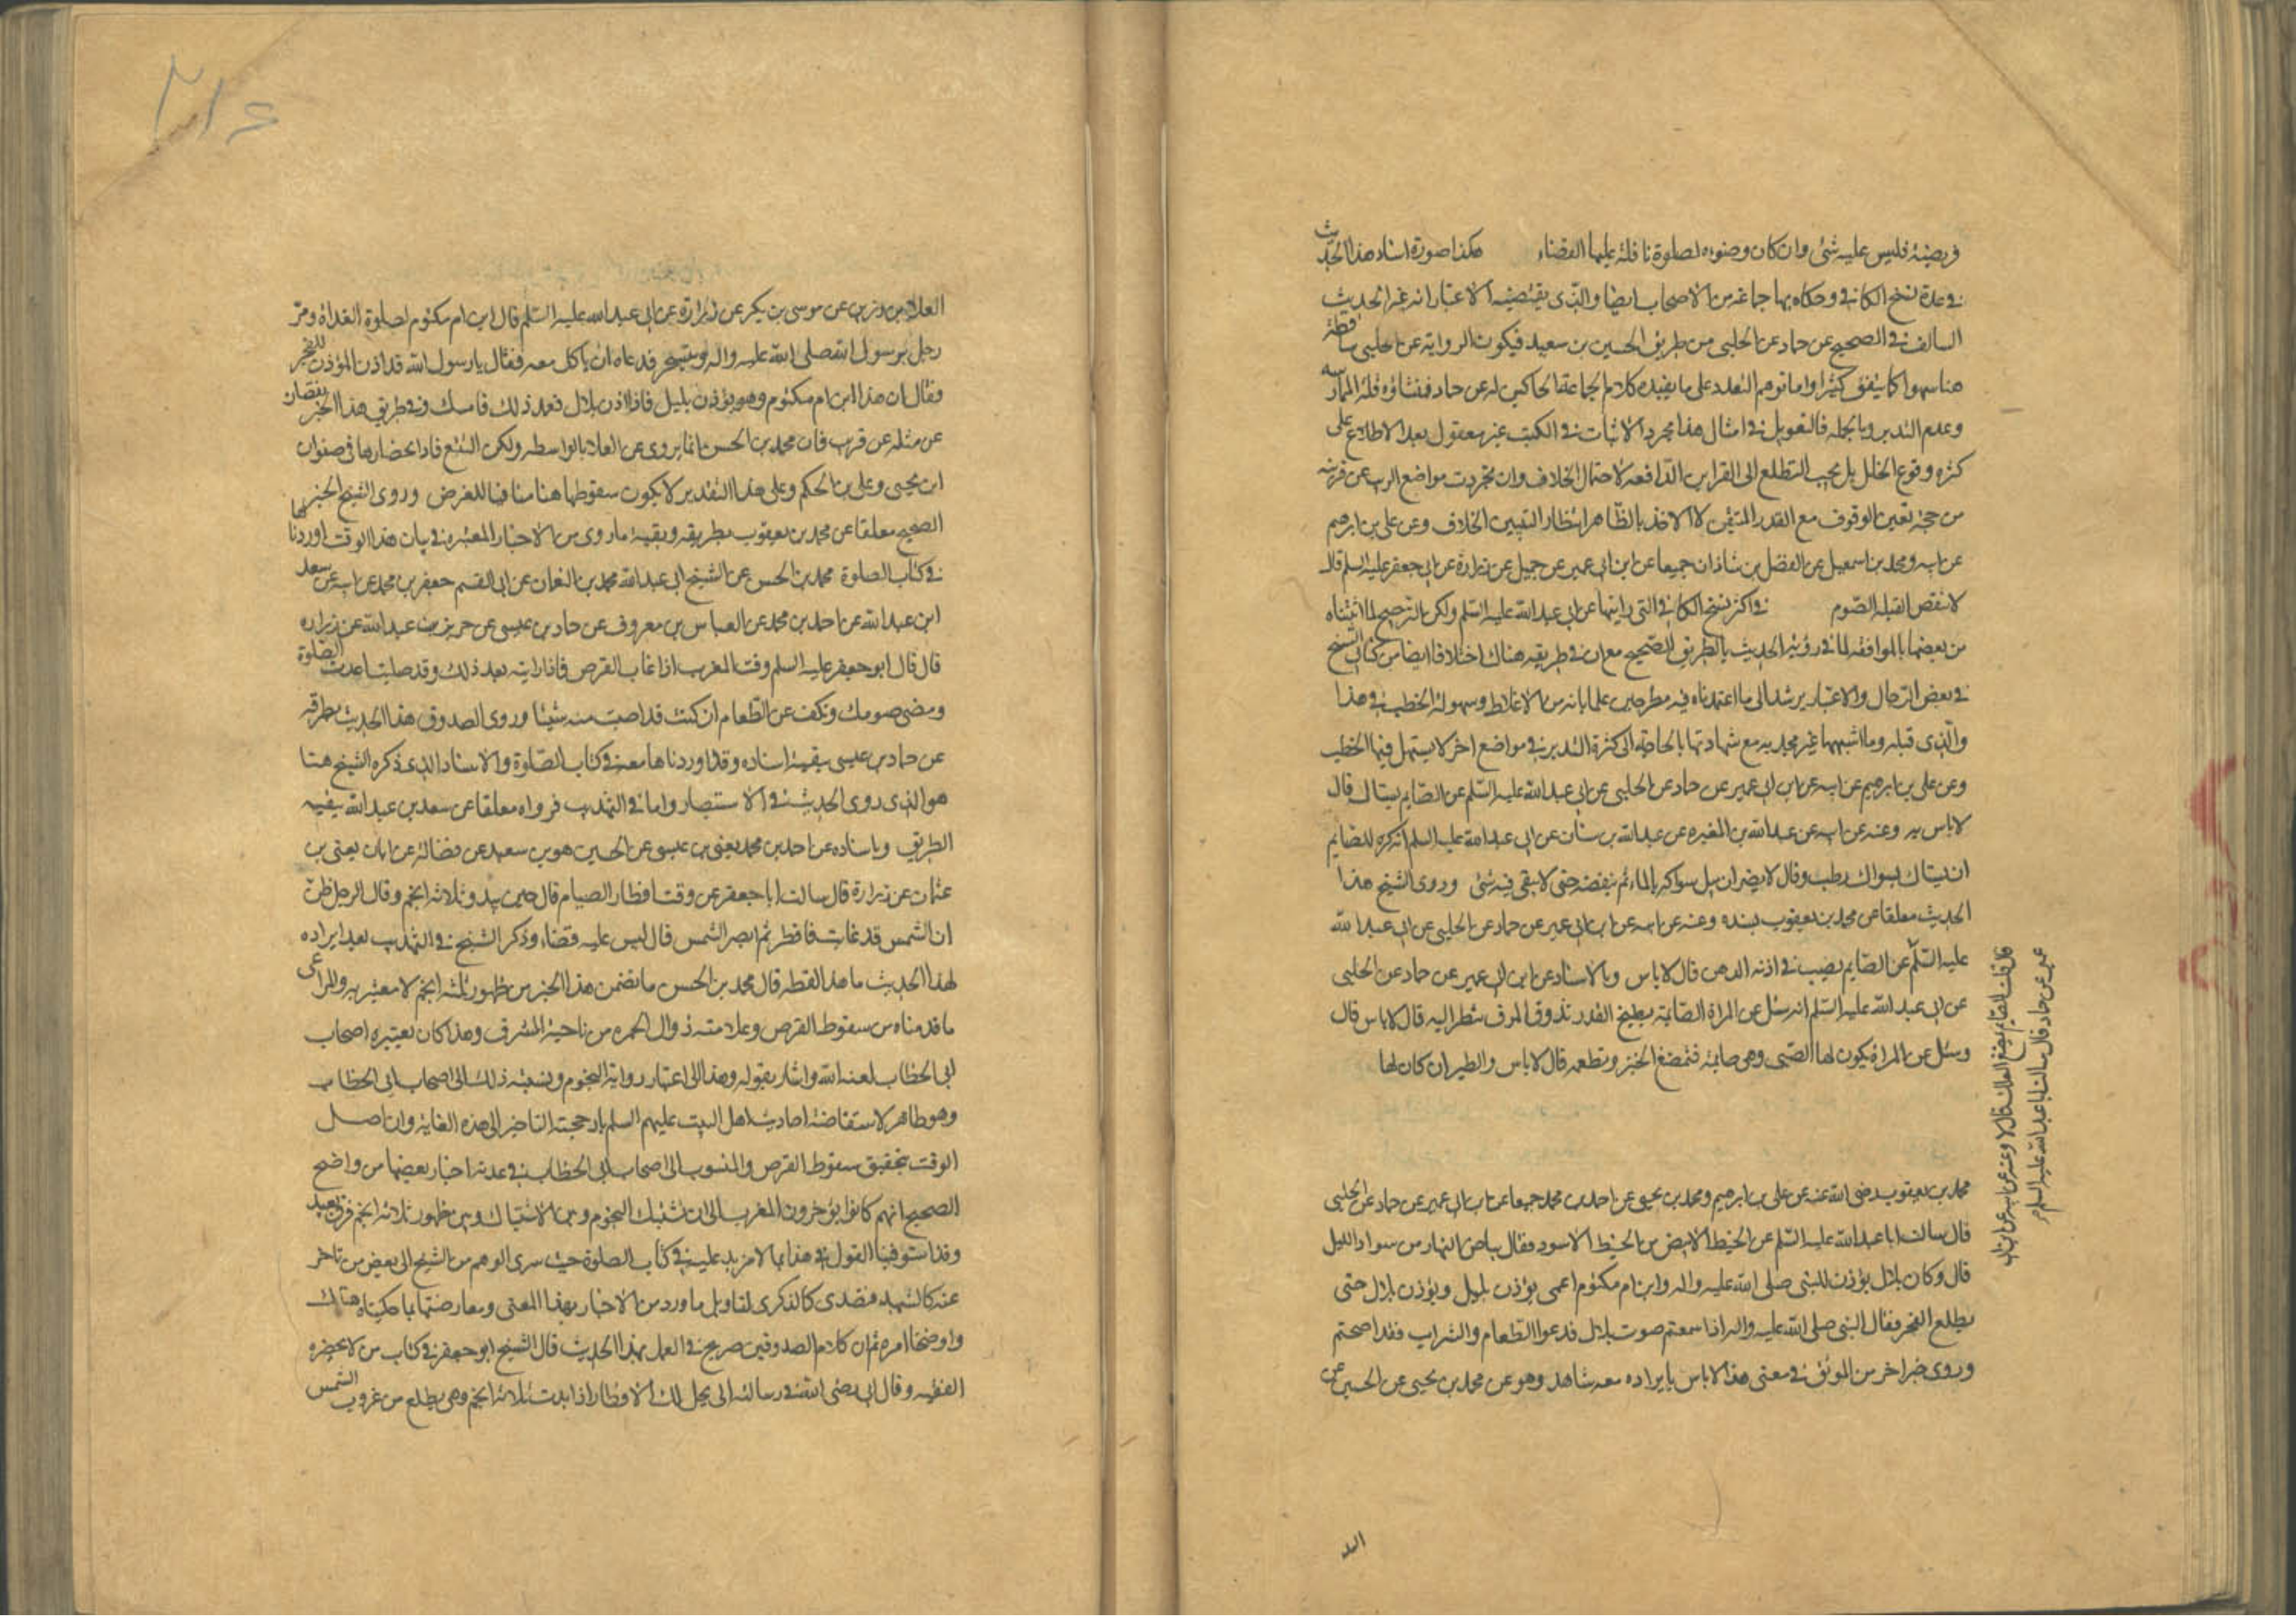 فريضة فليس عليه شئ وان كان وضوءه لصلوة نافلة عليها القضاء هكذا صورة اسناد هذا الحديث
في عدة نسخ الكافي وحكاه بها جماعة من الاصحاب ايضا والذي يقتضيه الاعتبار انه غير الحديث
السالف في الصحيح عن حماد عن الحلبي من طريق الحسين بن سعيد فيكون الرواية عن الحلبي ساقطة
هنا سهوا كما يتفق كثيرا واما توهم التعدد على ما يفيده كلام الجماعة الحاكين له عن حماد فمنشاؤه قلة الممارسة
وعدم التدبر وبالجملة فالتعويل في امثال هذا مجرد الاثبات في الكتب غير معقول بعد الاطلاع على
كثرة وقوع الخلل بل يجب التطلع الى القراين الدافعة لاحتمال الخلاف وان تجردت مواضع الريب عن قرينة
من حجة تعين الوقوف مع القدر المتيقن لا الاخذ بالظاهر انتظار التبيين الخلاف وعن علي بن ابرهيم
عن ابيه ومحمد بن اسمعيل عن الفضل بن شاذان جميعا عن ابن ابي عمير عن جميل عن زرارة عن ابي جعفر عليه السلم قال
لا تنقض القبلة الصوم في اكثر نسخ الكافي التي رايتها عن ابي عبد الله عليه السلم ولكن الترجيح لما اثبتناه
من بعضها بالموافقة لما في رؤية الحديث بالطريق الصحيح مع ان في طريقه هناك اختلافا ايضا من كتابي الشيخ
في بعض الرجال والاعتبار يرشد الى ما اعتمدناه فيه مطرحين علما بانه من الاغلاط وسهولة الخطب في هذا
والذي قبله وما اشبههما غير مجدية مع شهادتها بالحاجة الى كثرة التدبر في مواضع اخر لا يسهل فيها الخطب
وعن علي بن ابرهيم عن ابيه عن ابن ابي عمير عن حماد عن الحلبي عن ابي عبد الله عليه السلم عن الصايم يستاك قال
لا باس به وعنه عن ابيه عن عبد الله بن المغيرة عن عبد الله بن سنان عن ابي عبد الله عليه السلم انه كره للصايم
ان يستاك بسواك رطب وقال لا يضر ان يبل سواكه بالماء ثم ينفضه حتى لا يبقى فيه شئ وروى الشيخ هذا
الحديث معلقا عن محمد بن يعقوب بسنده وعنه عن ابيه عن ابن ابي عمير عن حماد عن الحلبي عن ابي عبد الله
عليه السلم عن الصايم يصب في اذنه الدهن قال لا باس وبالاسناد عن ابن ابي عمير عن حماد عن الحلبي
عن ابي عبد الله عليه السلم انه سئل عن المراة الصايمة يطبخ القدر تذوق المرق تنظر اليه قال لا باس قال
وسئل عن المراة يكون لها الصبي وهي صايمة فتمضغ الخبز وتطعمه قال لا باس والطير ان كان لها
محمد بن يعقوب رضي الله عنه عن علي بن ابرهيم ومحمد بن يحيى عن احمد بن محمد جميعا عن ابن ابي عمير عن حماد عن الحلبي
قال سالت ابا عبد الله عليه السلم عن الخيط الابيض من الخيط الاسود فقال بياض النهار من سواد الليل
قال وكان بلال يؤذن للنبي صلى الله عليه واله وابن ام مكتوم اعمى يؤذن بليل ويؤذن بلال حتى
يطلع الفجر فقال النبي صلى الله عليه واله اذا سمعتم صوت بلال فدعوا الطعام والشراب فقد اصبحتم
وروى خبرا اخر من الموثق في معنى هذا لا باس بايراده معه شاهد وهو عن محمد بن يحيى عن الحسين عن
عمير عن حماد قال سالت ابا عبد الله عليه السلم
قال قلت الصايم يمضغ العلك قال لا وعنه عن ابيه عن ابن ابي
العلا بن رزين عن موسى بن بكر عن زرارة عن ابي عبد الله عليه السلم قال ابن ام مكتوم لصلوة الغداة ومر
رجل برسول الله صلى الله عليه واله وهو يتسحر فدعاه ان ياكل معه فقال يا رسول الله قد اذن المؤذن للفجر
فقال ان هذا ابن ام مكتوم وهو يؤذن بليل فاذا اذن بلال فعند ذلك فامسك وفي طريق هذا الخبر نقصان
عن مثله عن قرب فان محمد بن الحسن انما يروي عن العلا بالواسطة ولكن التتبع فاد انحصارها في صفوان
ابن يحيى وعلي بن الحكم وعلى هذا التقدير لا يكون سقوطها هنا منافيا للغرض وروى الشيخ الخبر
الصحيح معلقا عن محمد بن يعقوب بطريقه وبقية ما روي من الاخبار المعتبرة في بيان هذا الوقت اوردناها
في كتاب الصلوة محمد بن الحسن عن الشيخ ابي عبد الله محمد بن النعمان عن ابي القسم جعفر بن محمد عن ابيه عن سعد
ابن عبد الله عن احمد بن محمد عن العباس بن معروف عن حماد بن عيسى عن حريز بن عبد الله عن زرارة
قال قال ابو جعفر عليه السلم وقت المغرب اذا غاب القرص فاذا رايته بعد ذلك وقد صليت اعدت الصلوة
ومضى صومك وتكف عن الطعام ان كنت قد اصبت منه شيئا وروى الصدوق هذا الحديث بطرقه
عن حماد بن عيسى ببقية اسناده وقد اوردناها معه في كتاب الصلوة والاسناد الذي ذكره الشيخ هنا
هو الذي روى الحديث في الاستبصار واما في التهذيب فرواه معلقا عن سعد بن عبد الله ببقية
الطريق وباسناده عن احمد بن محمد يعني بن عيسى عن الحسين هو بن سعيد عن فضالة عن ابان يعني بن
عثمان عن زرارة قال سالت ابا جعفر عن وقت افطار الصيام قال حين يبدو ثلاثة انجم وقال لرجل ظن
ان الشمس قد غابت فافطر ثم ابصر الشمس قال ليس عليه قضاء وذكر الشيخ في التهذيب بعد ايراده
لهذا الحديث ما هذا لفظه قال محمد بن الحسن ما تضمن هذا الخبر من ظهور ثلثة انجم لا معتبر به والمراعى
ما قدمناه من سقوط القرص وعلامته زوال الحمرة من ناحية المشرق وهذا كان يعتبره اصحاب
ابي الخطاب لعنه الله واشار بقوله وهذا الى اعتبار رواية النجوم ونسبة ذلك الى اصحاب ابي الخطاب
وهو ظاهر لاستفاضة احاديث اهل البيت عليهم السلم بارجحية التاخير الى هذه الغاية وان اصل
الوقت بتحقيق سقوط القرص والمنسوب الى اصحاب ابي الخطاب في عدة اخبار بعضها من واضح
الصحيح انهم كانوا يؤخرون المغرب الى ان تشتبك النجوم وبين الاشتباك وبين ظهور ثلاثة انجم فرق بعيد
وقد استوفينا القول في هذا بما لا مزيد عليه في كتاب الصلوة حيث سرى الوهم من الشيخ الى بعض من تاخر
عنه كالشهيد فتصدى كالذكرى لتاويل ما ورد من الاخبار بهذا المعنى ومعارضتها بما حكيناه هناك
واوضحنا امره ثم ان كلام الصدوقين صريح في العمل بهذا الحديث قال الشيخ ابو جعفر في كتاب من لا يحضره
الفقيه وقال ابي رضي الله في رسالته الي يحل لك الافطار اذا بدت ثلاثة انجم وهي يطلع من غروب الشمس